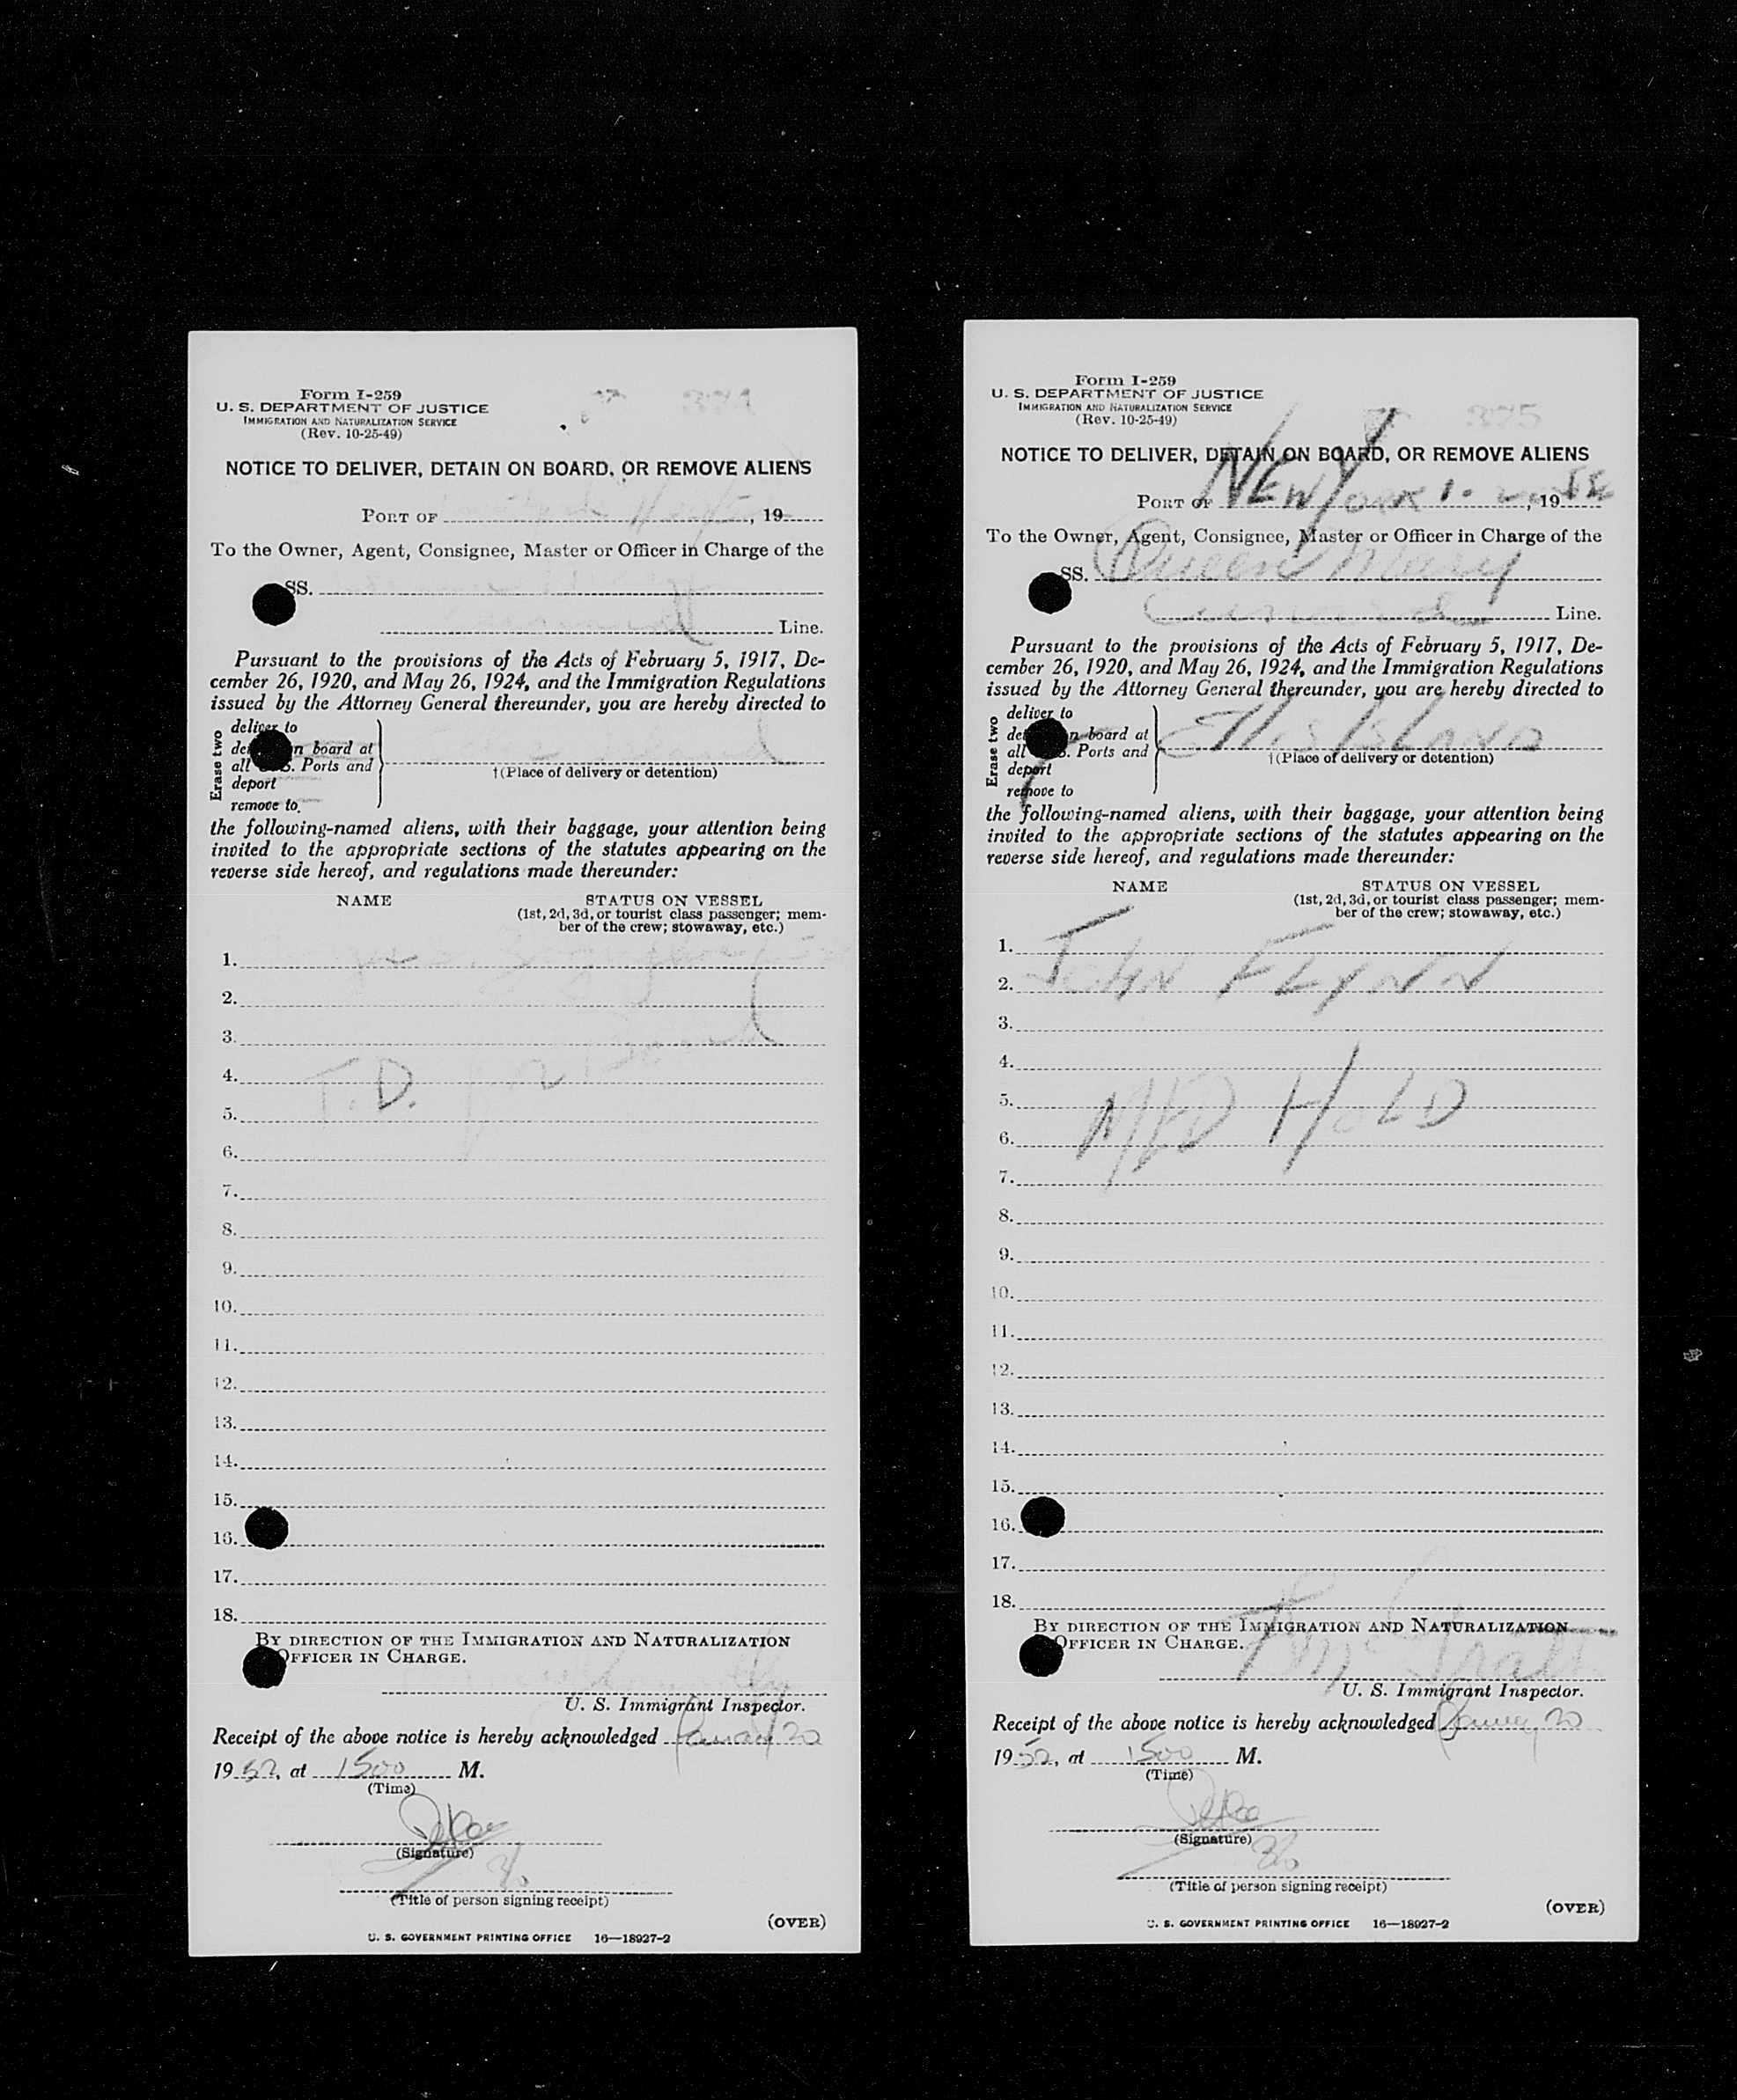 Form I-259
U. S. DEPARTMENT OF JUSTICE
IMMIGRATION AND NATURALIZATION SERVICE
(Rev. 10-25-49)
NOTICE TO DELIVER, DETAIN ON BOARD, OR REMOVE ALIENS
PORT OF , 19
To the Owner, Agent, Consignee, Master or Officer in Charge of the
SS.
Line.
Pursuant to the provisions of the Acts of February 5, 1917, De-
cember 26, 1920, and May 26, 1924, and the Immigration Regulations
issued by the Attorney General thereunder, you are hereby directed to
Erase two
deliver to
n board at
all S. Ports and
deport
remove to
†(Place of delivery or detention)
the following-named aliens, with their baggage, your attention being
invited to the appropriate sections of the statutes appearing on the
reverse side hereof, and regulations made thereunder:
NAME STATUS ON VESSEL
(1st, 2d, 3d, or tourist class passenger; mem-
ber of the crew; stowaway, etc.)
1.
2.
3.
4. T.D.
5.
6.
7.
8.
9.
10.
11.
12.
13.
14.
15.
16.
17.
18.
BY DIRECTION OF THE IMMIGRATION AND NATURALIZATION
OFFICER IN CHARGE.
U. S. Immigrant Inspector.
Receipt of the above notice is hereby acknowledged 20
1952, at 1500 M.
(Time)
(Signature)
(Title of person signing receipt)
(OVER)
U. S. GOVERNMENT PRINTING OFFICE 16—18927-2
Form I-259
U. S. DEPARTMENT OF JUSTICE
IMMIGRATION AND NATURALIZATION SERVICE
(Rev. 10-25-49)
375
NOTICE TO DELIVER, DETAIN ON BOARD, OR REMOVE ALIENS
PORT OF NEW YORK 1. , 1952
To the Owner, Agent, Consignee, Master or Officer in Charge of the
SS. Queen Mary
Cunard Line.
Pursuant to the provisions of the Acts of February 5, 1917, De-
cember 26, 1920, and May 26, 1924, and the Immigration Regulations
issued by the Attorney General thereunder, you are hereby directed to
Erase two
deliver to
n board at
all S. Ports and
deport
remove to
Ellis Island
†(Place of delivery or detention)
the following-named aliens, with their baggage, your attention being
invited to the appropriate sections of the statutes appearing on the
reverse side hereof, and regulations made thereunder:
NAME STATUS ON VESSEL
(1st, 2d, 3d, or tourist class passenger; mem-
ber of the crew; stowaway, etc.)
1.
2. JOHN FLYNN
3.
4.
5. MED HOLD
6.
7.
8.
9.
10.
11.
12.
13.
14.
15.
16.
17.
18.
BY DIRECTION OF THE IMMIGRATION AND NATURALIZATION
OFFICER IN CHARGE.
U. S. Immigrant Inspector.
Receipt of the above notice is hereby acknowledged 20
1952, at 1500 M.
(Time)
(Signature)
(Title of person signing receipt)
(OVER)
U. S. GOVERNMENT PRINTING OFFICE 16—18927-2